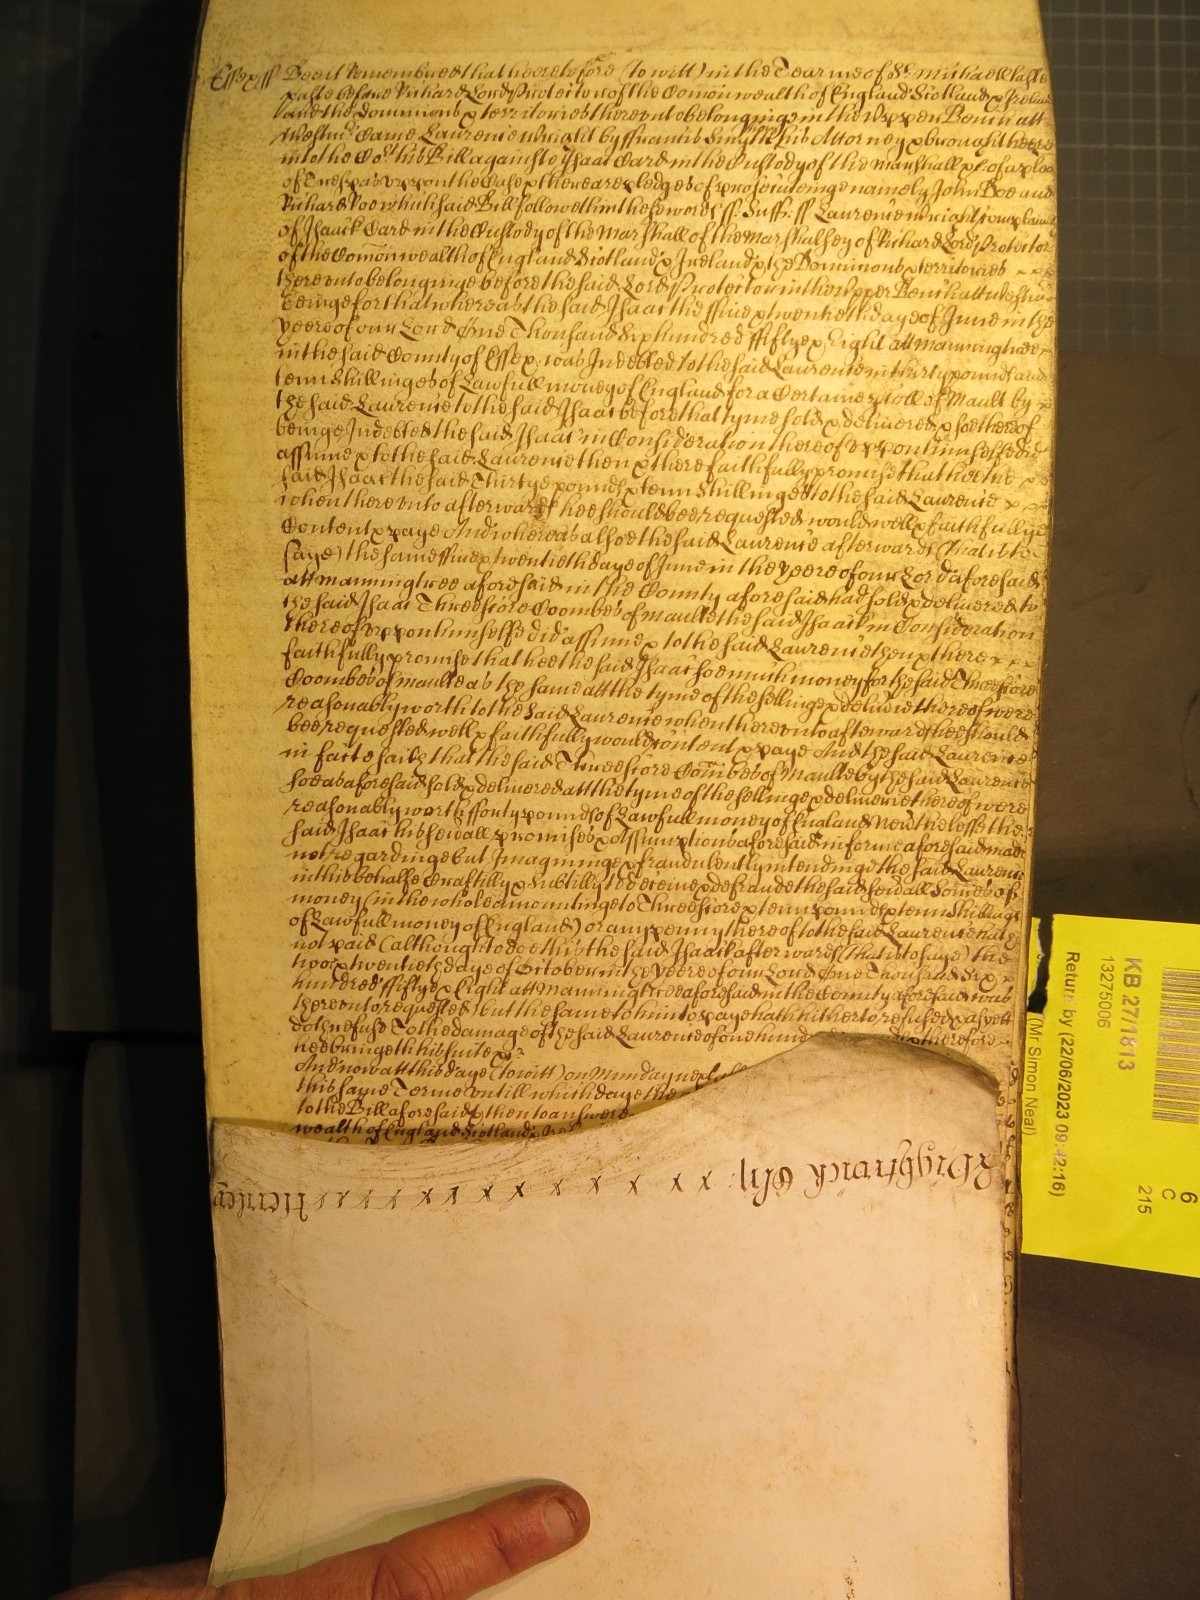 Essex ss Bee it Remembred that heeretofore (to witt) in the Tearme of St Michaell laste
paste before Richard Lord Protector of the Comonwealth of England Scotland & Ireland
and the Dominions & territories thereunto belonginge in the Upper Bench att
Westmr Came Laurence Wright by ffrancis Smyth his Attorney & brought heere
into the Cort his Bill against Isaac Card in the Custody of the Marshall &c of a plea
of Trespas uppon the Case & there are pledges of prosecuteinge namely John Doe and
Richard Roe which said Bill followeth in these words ss Suff. ss Laurence wright complaines
of Isaack Card in the Custody of the Marshall of the Marshalsey of Richard Lord Protector
of the Comonwealth of England Scotland & Ireland & the Dominions & territories x x x
thereunto belonginge before the said Lord Protector in the Upper Bench att Westmr
beinge for that whereas the said Isaac the ffive & twentieth day of June in the
yeere of our Lord One Thousand Six hundred ffiftye & Eight att Manningtree x
in the said County of Essex was Indebted to the said Laurence in thirty pounds and
tenn Shillinges of Lawfull money of England for a Certaine & toll of Mault by x
the said Laurence to the said Isaac before that tyme sold & delivered & soe thereof
beinge Indebted the said Isaac in Consideration thereof uppon himselfe did
assume & to the said Laurence then & there faithfully promise that hee the x
said Isaac the said Thirtye pounds & tenn Shillinges to the said Laurence x x x
when thereunto afterwards hee should bee requested would well & faithfullye
Content & paye And whereas alsoe the said Laurence afterwards (that is to
saye) the same ffive & twentieth day of June in the yeere of our Lord aforesaid
att Manningtree aforesaid in the County aforesaid had sold & delivered to
the said Isaac Threescore Coombes of mault the said Isaack in Consideration
thereof uppon himselfe did assume & to the said Laurence then & there x x x
faithfully promise that hee the said Isaac soe much money for the said Threescore
Coombes of mault as the same att the tyme of the sellinge & deliverie thereof were
reasonably worth to the said Laurence when thereunto afterwards hee should
bee requested well & faithfully would content & paye And the said Laurence
in facte saith that the said Threescore Coombes of Mault by the said Laurence
soe as aforesaid sold & delivered att the tyme of the sellinge & deliverie thereof were
reasonably worth fforty pounds of Lawfull money of England Neverthelesse the
said Isaac his severall promises & assumptions aforesaid in forme aforesaid made
not regardinge but Imagininge & fraudulently intendinge the said Laurence
in this behalfe Craftilly & subtilly to deceive & defraude the said severall Somes of
money (in the whole amountinge to Threescore & tenn pounds & tenn Shillings
of Lawfull money of England) or any penny thereof to the said Laurence hath
not paid (although to doe this the said Isaack afterwards (that is to saye) the
two & twentieth daye of October in the Yeere of our Lord One Thousand Six x
hundred ffiftye & Eight att Manningtree aforesaid in the County aforesaid was
thereunto requested) but the same to him to paye hath hitherto refused & as yett
doth refuse To the damage of the said Laurence of one hund & therefore
hee bringeth his suite &c
And now att this daye (to witt) on Munday next
this same Terme untill which daye the
to the Bill aforesaid & then to answere
wealth of England Scotland & Ire
Henley x x x x x x x x x x x x x x
KB 27/1813
13275006
Return by (22/06/2023 09:42:16)
(Mr Simon Neal)
6
C
215